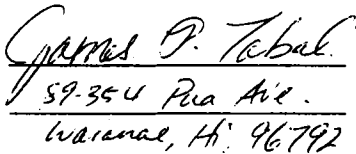 James P. Tabal
59-354 Pua Ave.
Waianae, Hi. 96792